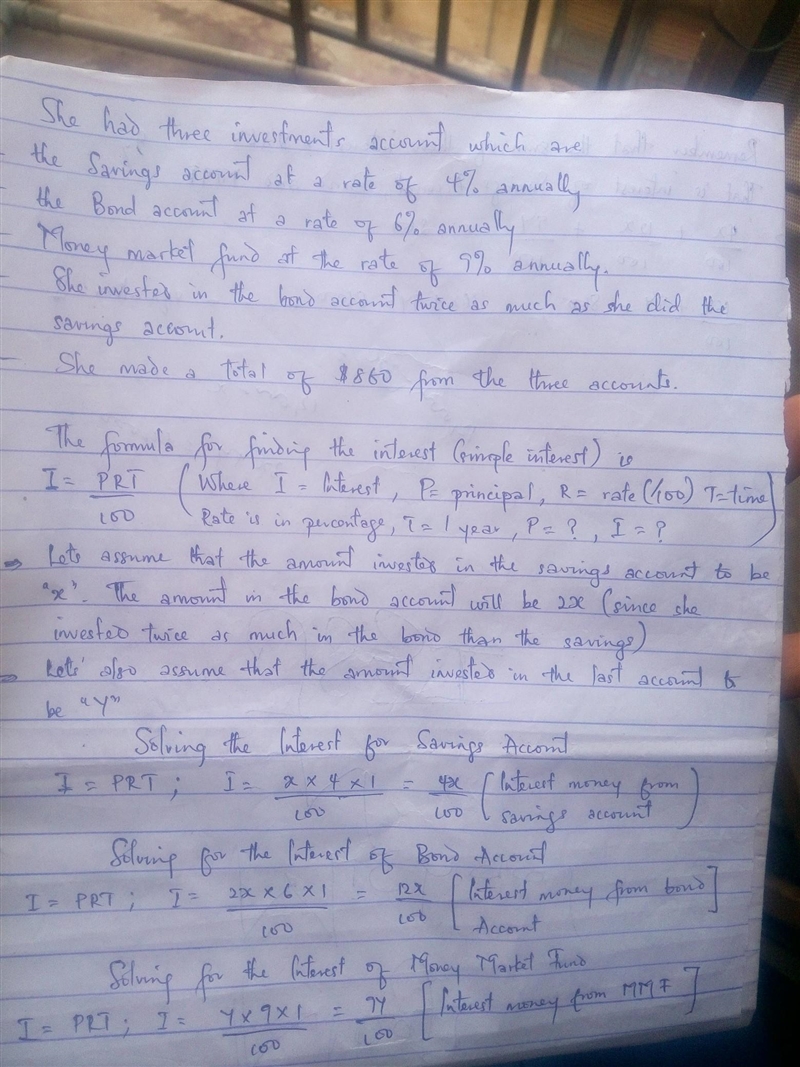 She had three investments account which are
- the Savings account at a rate of 4% annually
- the Bond account at a rate of 6% annually
- Money market fund at the rate of 9% annually.
- She invested in the bond account twice as much as she did the
savings account.
- She made a total of $860 from the three accounts.
The formula for finding the interest (simple interest) is
I = PRT/100 (Where I = Interest, P= principal, R = rate (/100) T=time
Rate is in percentage, T = 1 year, P = ?, I = ?)
⇒ Lets assume that the amount invested in the savings account to be
"x". The amount in the bond account will be 2x (since she
invested twice as much in the bond than the savings)
⇒ Lets' also assume that the amount invested in the last account to
be "Y"
Solving the Interest for Savings Account
I = PRT ; I = x × 4 × 1/100 = 4x/100 (Interest money from
savings account)
Solving for the Interest of Bond Account
I = PRT ; I = 2x × 6 × 1/100 = 12x/100 [Interest money from bond
Account]
Solving for the Interest of Money Market Fund
I = PRT ; I = Y × 9 × 1/100 = 9Y/100 [Interest money from MMF]